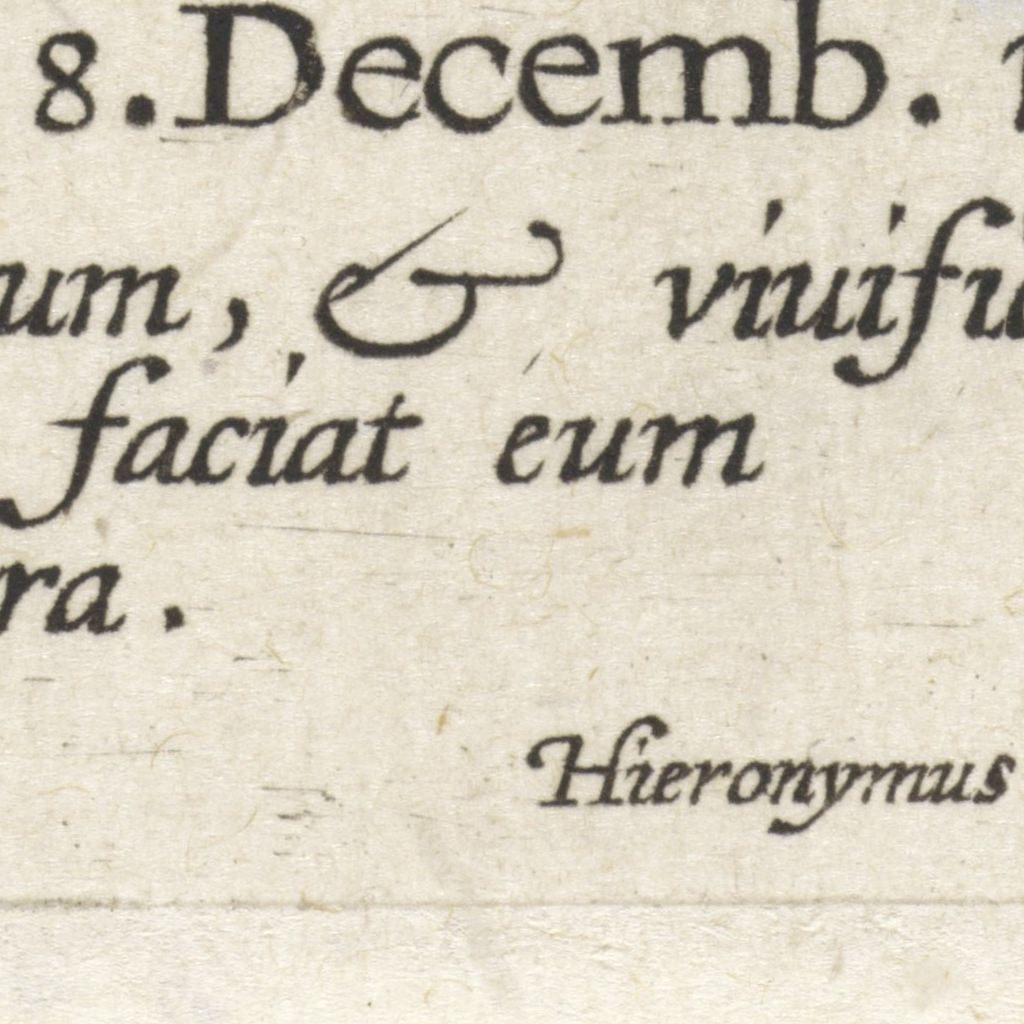 8. Decemb.
um, & viuifi
faciat eum
ra.
Hieronymus